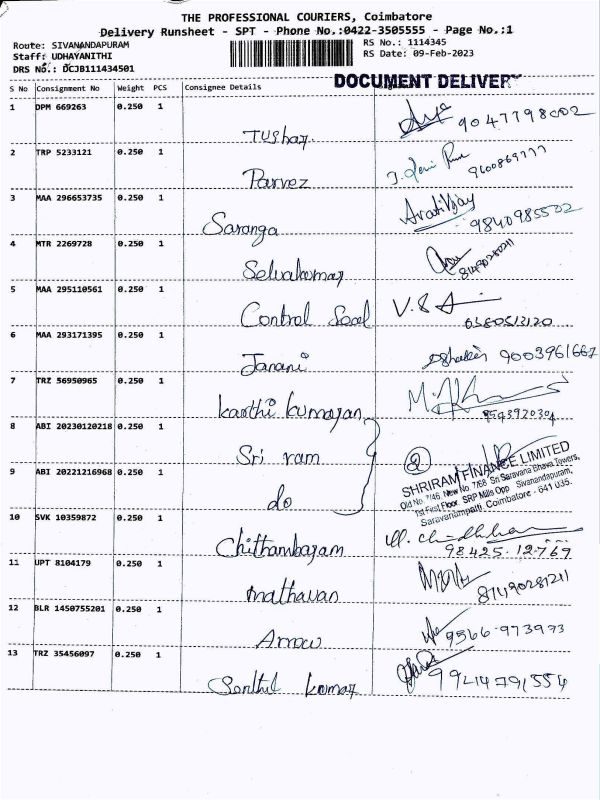 THE PROFESSIONAL COURIERS, Coimbatore
Delivery Runsheet - SPT - Phone No.:0422-3505555 - Page No.:1
Route: SIVANANDAPURAM
RS No.: 1114345
Staff: UDHAYANITHI
RS Date: 09-Feb-2023
DRS No.: DCJB111434501
DOCUMENT DELIVERY
S No Consignment No Weight PCS Consignee Details
1 DPM 669263 0.250 1
Tushar 9047798002
2 TRP 5233121 0.250 1
Parvez 9600869777
3 MAA 296653735 0.250 1
Saranga Arati Vijay 9840985502
4 MTR 2269728 0.250 1
Selvakumar
5 MAA 295110561 0.250 1
Control Seal V.S
6 MAA 293171395 0.250 1
Janani 9003961667
7 TRZ 56950965 0.250 1
Karthi Kumaran
8 ABI 20230120218 0.250 1
Sri ram 2
9 ABI 20221216968 0.250 1
do
SHRIRAM FINANCE LIMITED
Old No. 7/46, New No 7/68 Sri Saravana Bhava Towers,
1st First Floor, SRP Mills Opp Sivanandapuram,
Saravanampatti, Coimbatore - 641 035.
10 SVK 10359872 0.250 1
Chithambaram 98425.12769
11 UPT 8104179 0.250 1
Mathavan 81490281211
12 BLR 1450755201 0.250 1
Arrow 9566-973973
13 TRZ 35456097 0.250 1
Senthil Kumar 9944791554